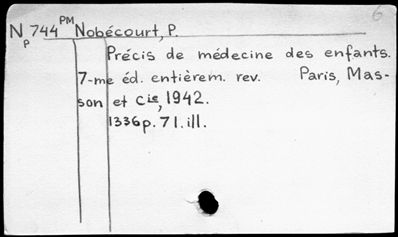 6
N 744 PM Nobécourt, P.
p
Précis de médecine des enfants.
7-me éd. entièrem. rev. Paris, Mas-
son et Cie, 1942.
1336p. 71.ill.